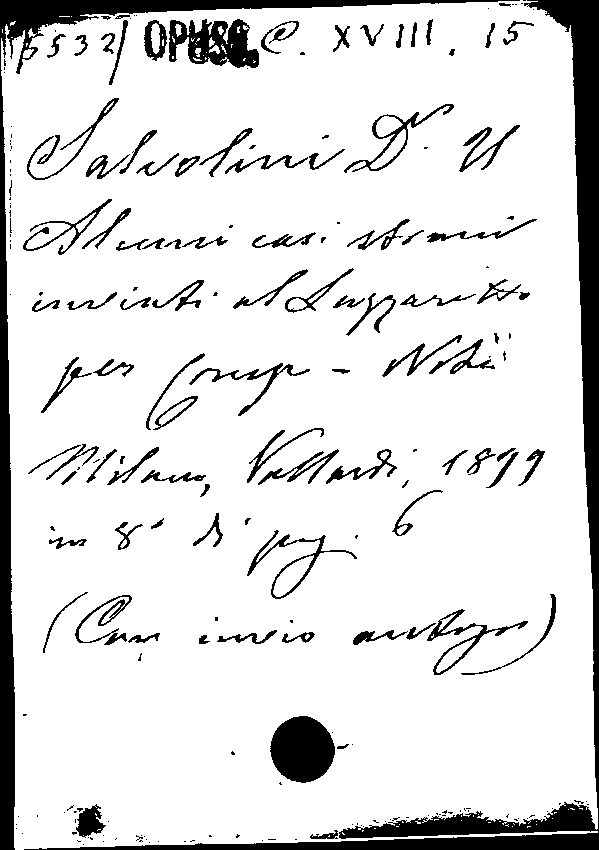 5532) OPUSC. C. XVIII. 15
Salvolini Dr. U
Alcuni casi strani
inviati al Lazzaretto
per Croup - Nota
Milano, Vallardi, 1899
in 8° di pag. 6
(Con invio autogr)